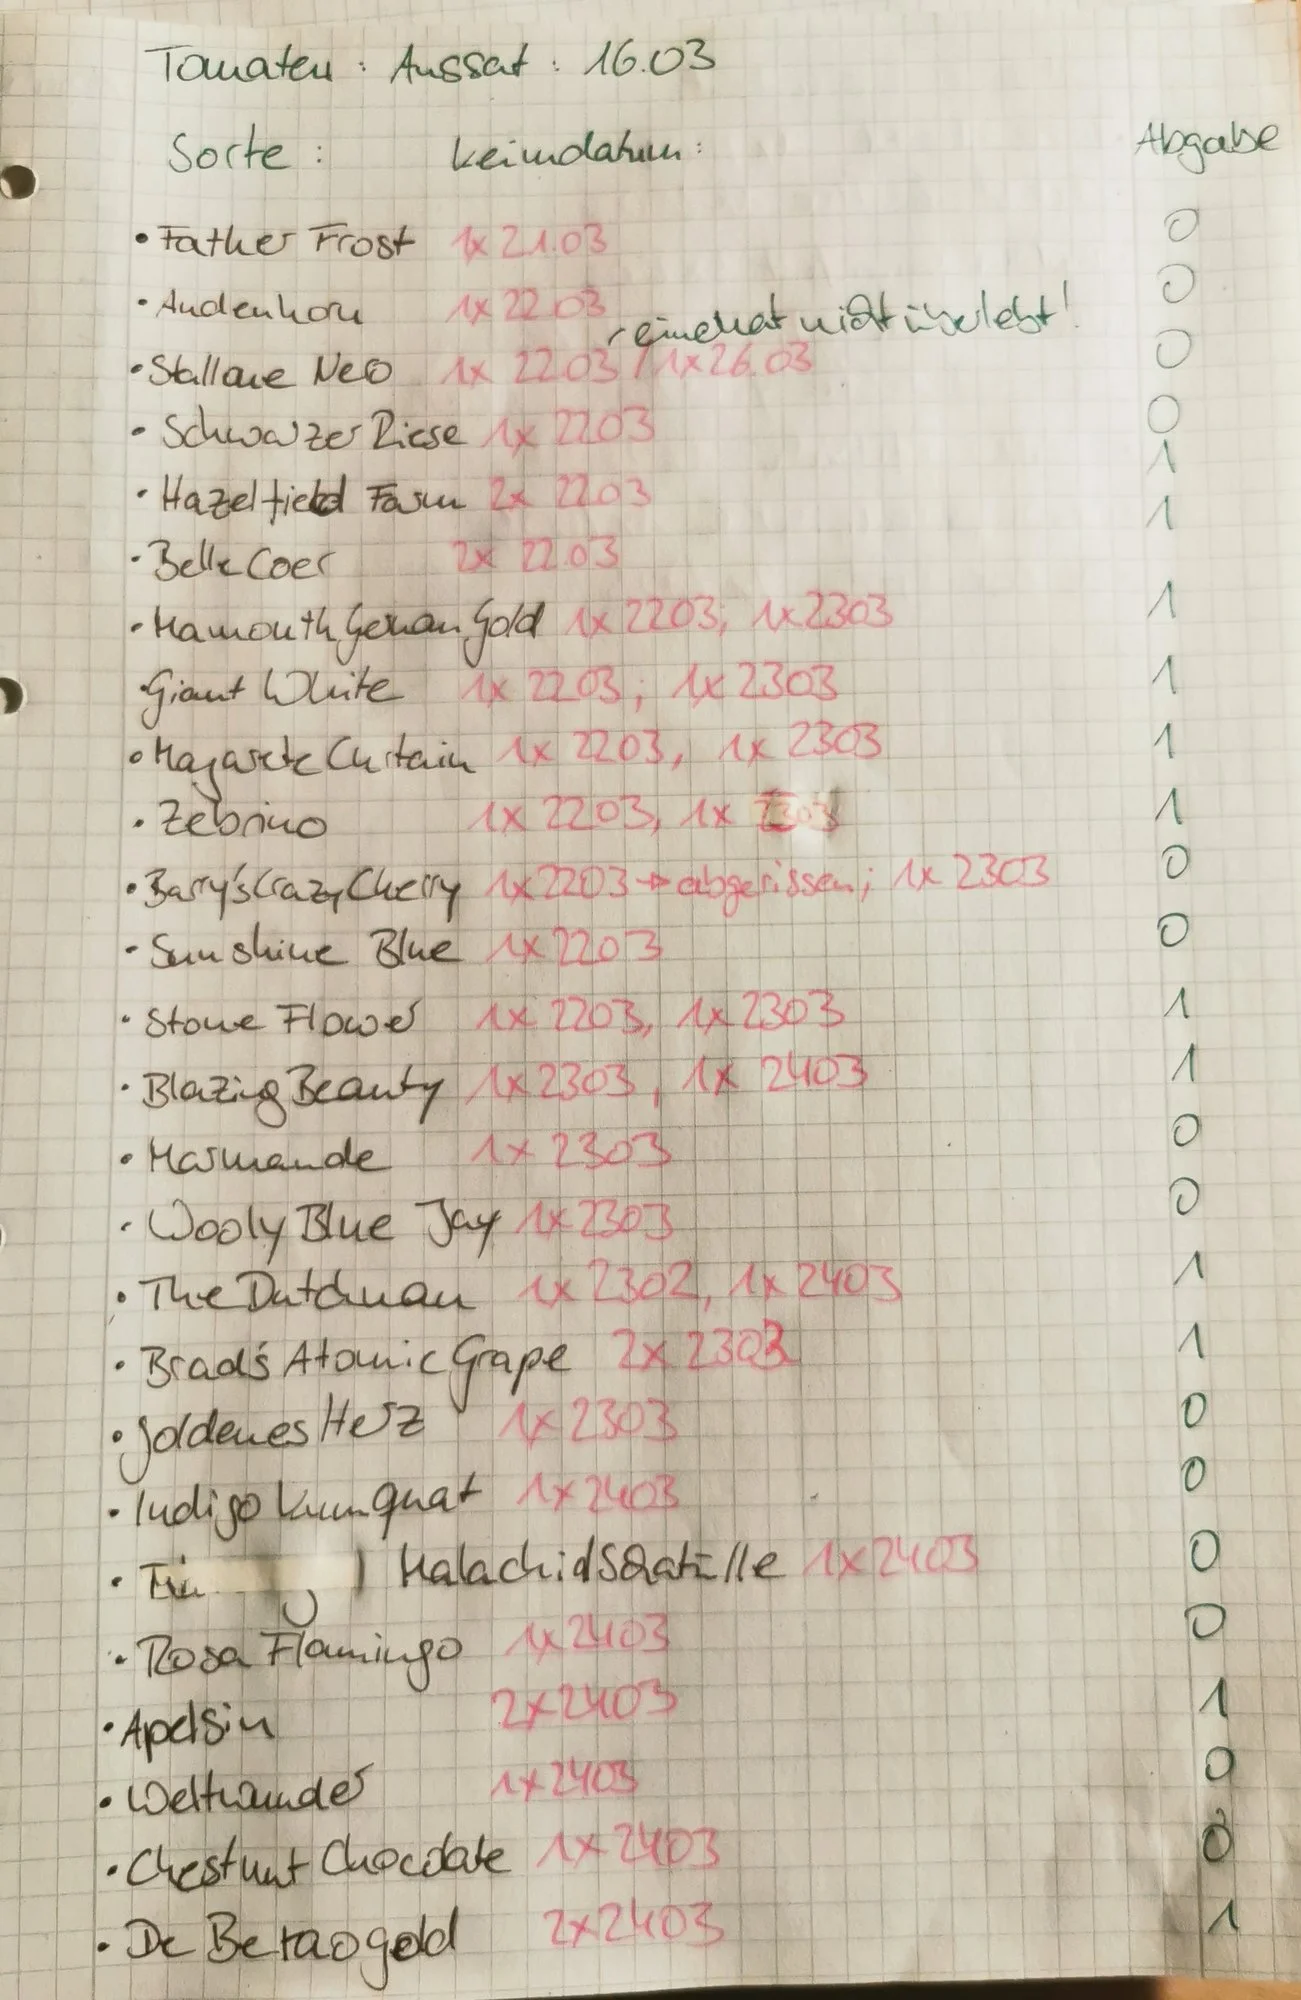 Tomaten : Aussaat : 16.03
Sorte : Keimdatum : Abgabe
• Father Frost 1x 21.03 0
• Andenhorn 1x 22.03 0
eine hat nicht überlebt!
• Stallone Neo 1x 2203 / 1x 26.03 0
• Schwarzer Riese 1x 2203 0
• Hazelfield Farm 2x 2203 1
• Belle Coer 2x 22.03 1
• Mamouth German Gold 1x 2203, 1x 2303 1
• Giant White 1x 2203, 1x 2303 1
• Magarete Curtain 1x 2203, 1x 2303 1
• Zebrino 1x 2203, 1x 2303 1
• Barry's Crazy Cherry 1x 2203 → abgerissen; 1x 2303 0
• Sunshine Blue 1x 2203 0
• Stone Flower 1x 2203, 1x 2303 1
• Blazing Beauty 1x 2303, 1x 2403 1
• Marmande 1x 2303 0
• Wooly Blue Jay 1x 2303 0
• The Dutchman 1x 2302, 1x 2403 1
• Brad's Atomic Grape 2x 2303 1
• Goldenes Herz 1x 2303 0
• Indigo Kumquat 1x 2403 0
• Malachidschatülle 1x 2403 0
• Rosa Flamingo 1x 2403 0
• Apelsin 2x 2403 1
• Weltwunder 1x 2403 0
• Chestnut Chocolate 1x 2403 0
• De Beraogold 2x 2403 1